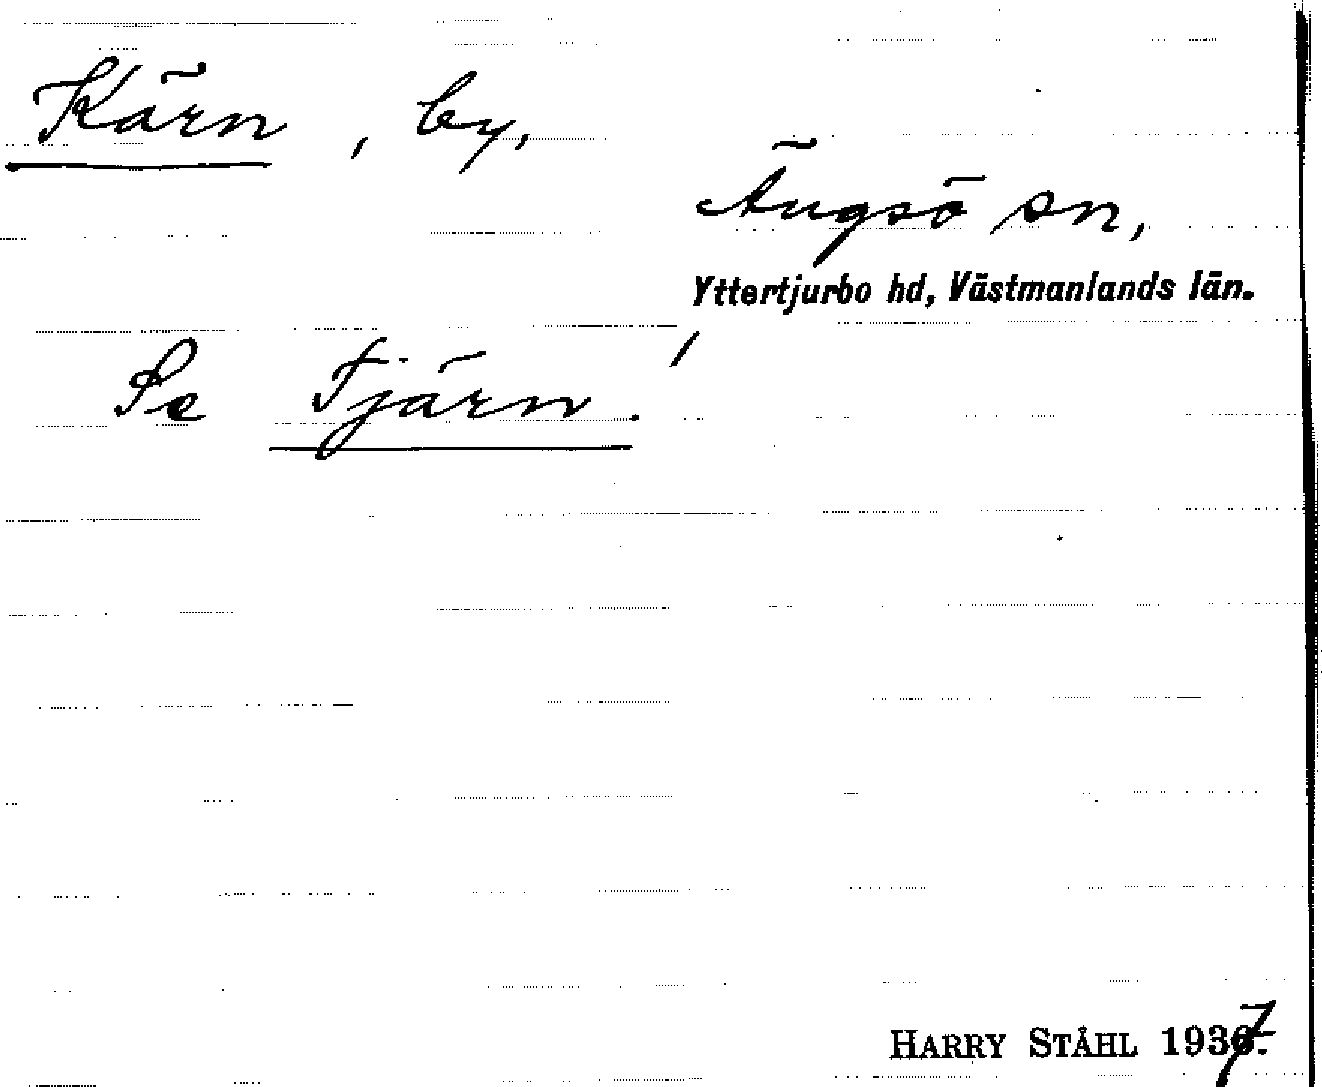 Kärn, by,
Ängsö sn,
Yttertjurbo hd, Västmanlands län.
Se Tjärn.
HARRY STÅHL 1937.